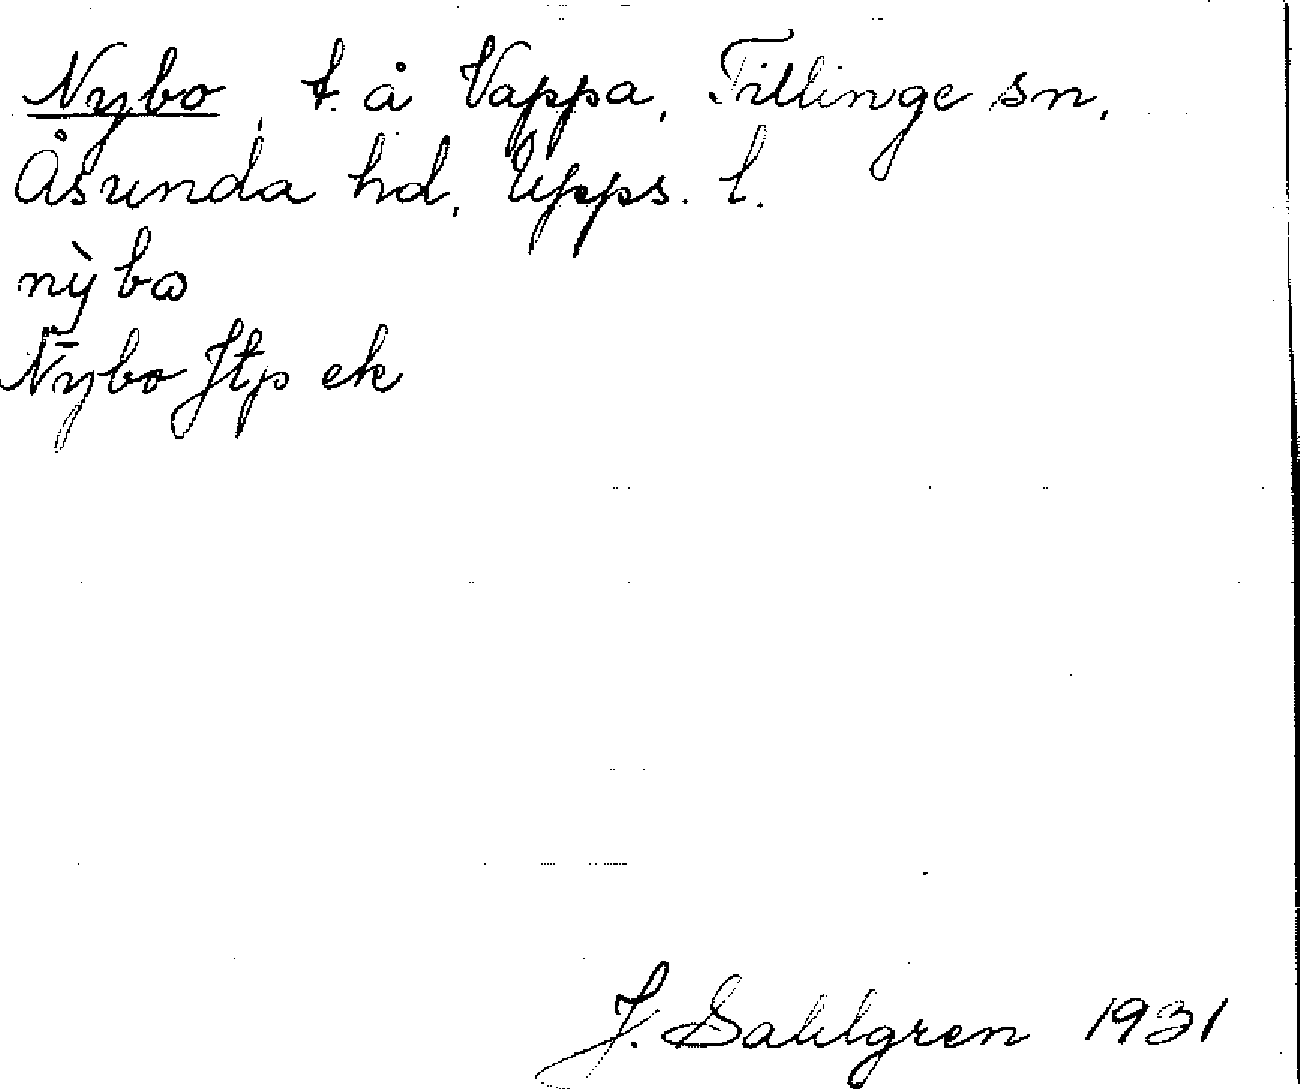 Nybo, t. å Vappa, Tillinge sn,
Åsunda hd, Upps. l.
nỳbɷ
Nybo Jtp ek
J. Sahlgren 1931